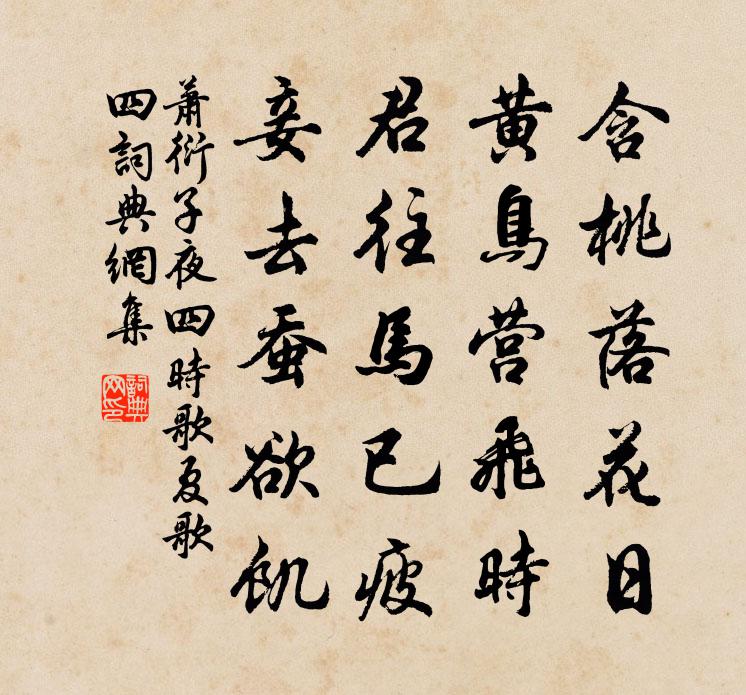 含桃落花日
黄鳥营飛時
君往馬已疲
妾去蚕欲飢
萧衍子夜四時歌夏歌
四詞典網集
詞典网印